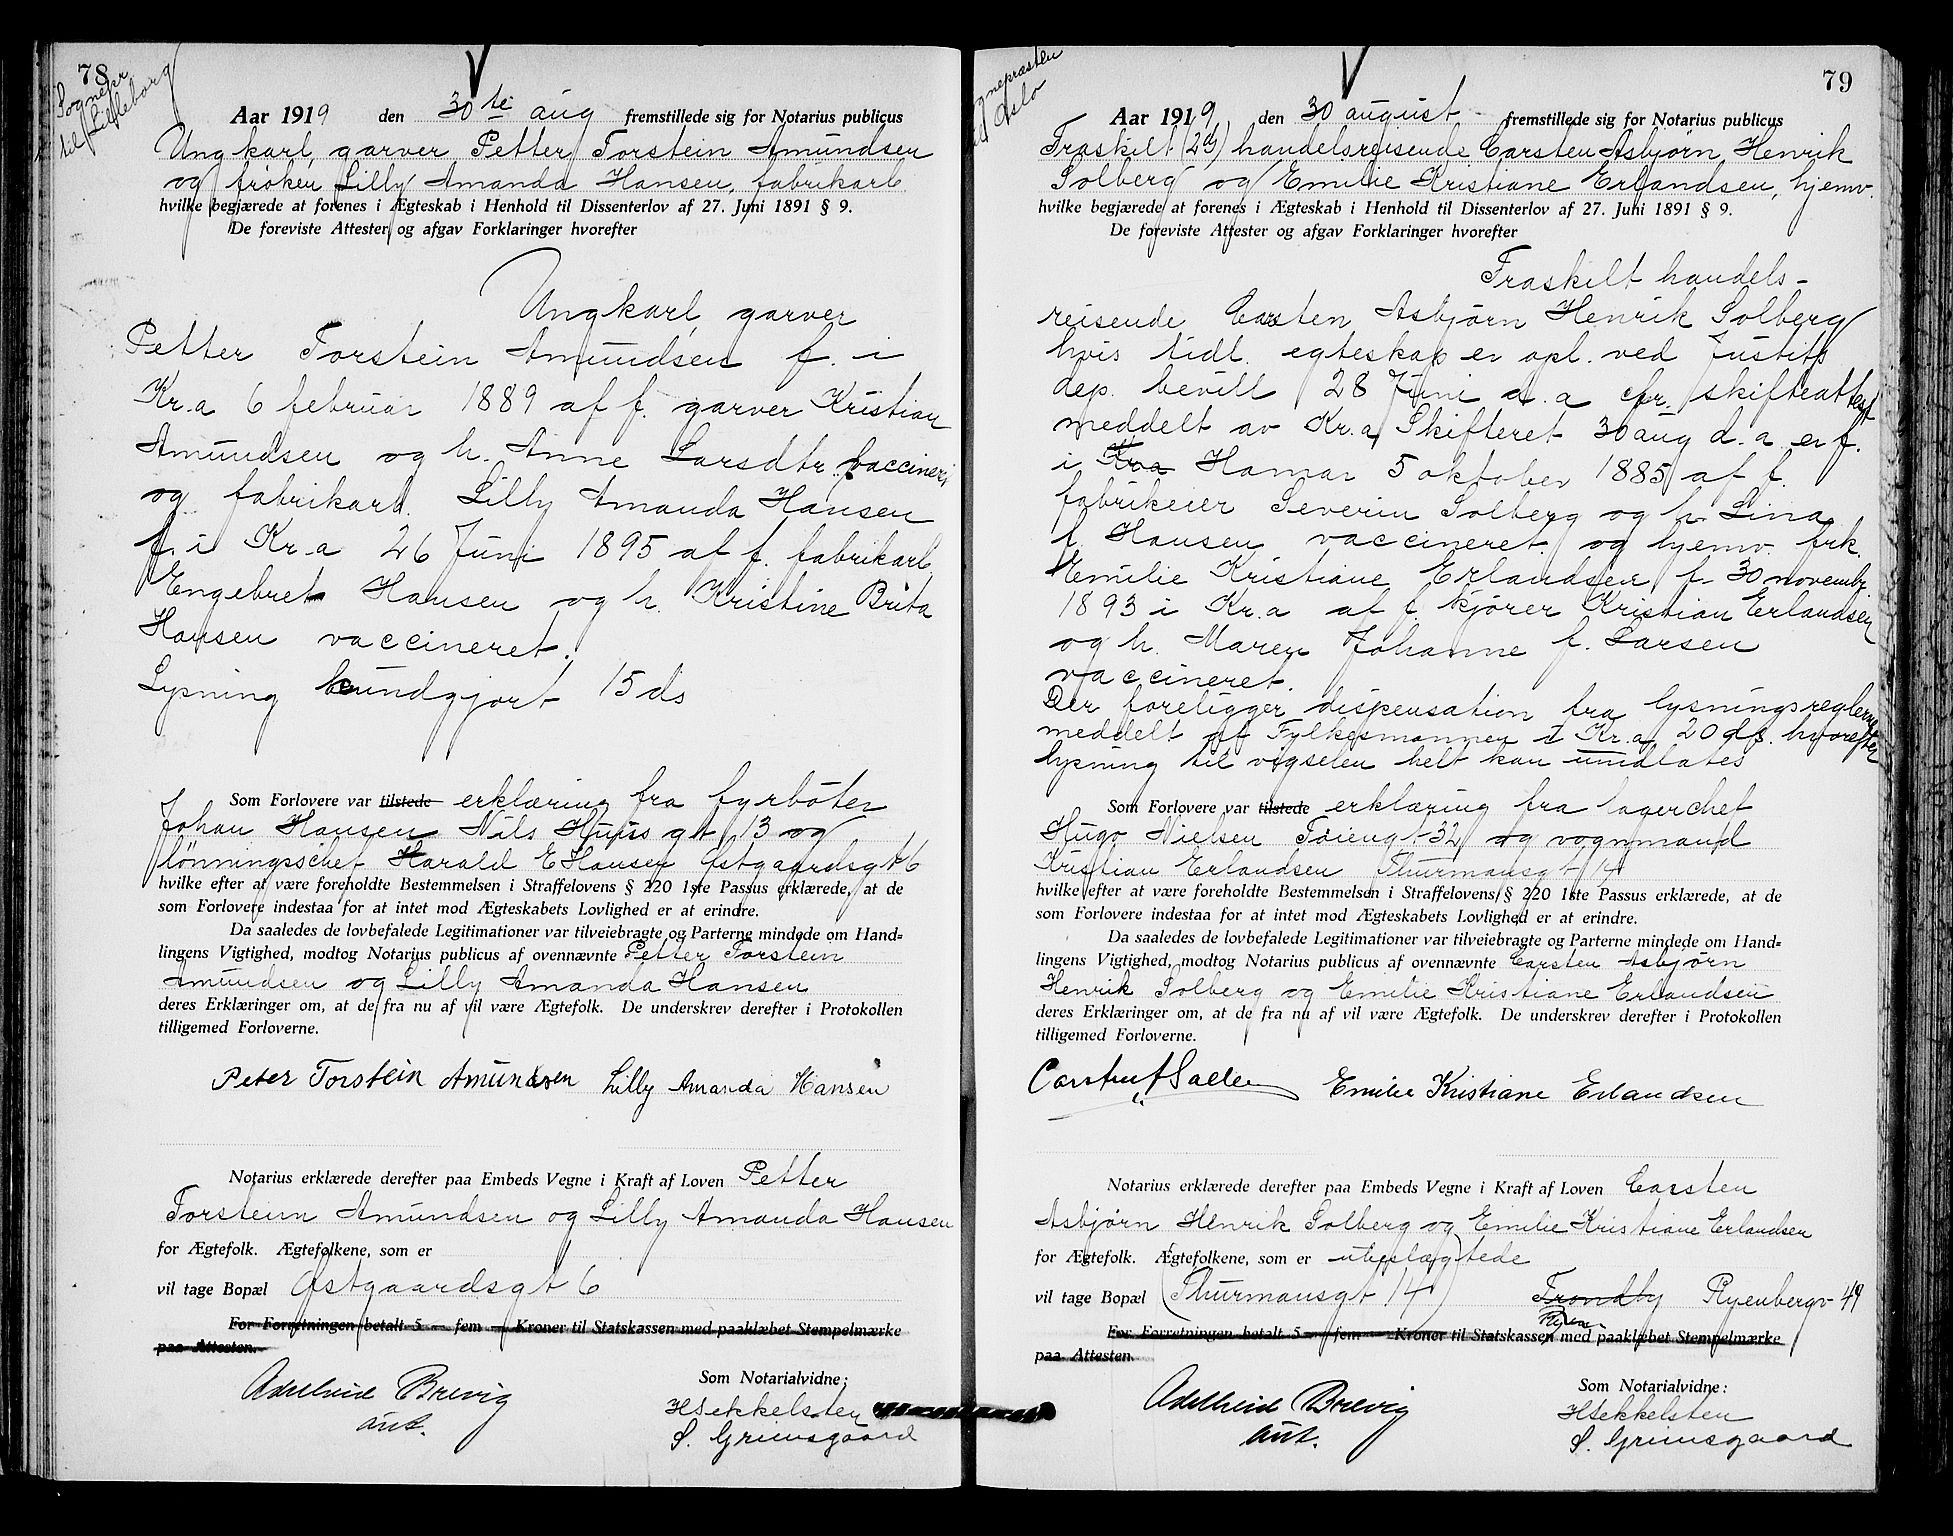 78
Sognepr
til Lilleborg
Aar 1919 den 30te aug fremstillede sig for Notarius publicus
Ungkarl, garver Petter Torstein Amundsen
og frøken Lilly Amanda Hansen, fabrikarb.
hvilke begjærede at forenes i Ægteskab i Henhold til Dissenterlov af 27. Juni 1891 § 9.
De foreviste Attester og afgav Forklaringer hvorefter
Ungkarl, garver
Petter Torstein Amundsen f. i
Kr.a 6 februar 1889 af f. garver Kristian
Amundsen og h. Anne Larsdtr. vaccineri
og fabrikarb. Lilly Amanda Hansen
f. i Kr.a 26 Juni 1895 af f. fabrikarb.
Engebret Hansen og h. Kristine Brita
Hansen vaccineret.
Lysning kundgjort 15 ds
Som Forlovere var tilstede erklæring fra fyrbøter
Johan Hansen Nils Huus gt 13 og
lønningschef Harald E Hansen Østgaardsgt 6
hvilke efter at være foreholdte Bestemmelsen i Straffelovens § 220 1ste Passus erklærede, at de
som Forlovere indestaa for at intet mod Ægteskabets Lovlighed er at erindre.
Da saaledes de lovbefalede Legitimationer var tilveiebragte og Parterne mindede om Hand=
lingens Vigtighed, modtog Notarius publicus af ovennævnte Petter Torstein
Amundsen og Lilly Amanda Hansen
deres Erklæringer om, at de fra nu af vil være Ægtefolk. De underskrev derefter i Protokollen
tilligemed Forloverne.
Peter Torstein Amundsen Lilly Amanda Hansen
Notarius erklærede derefter paa Embeds Vegne i Kraft af Loven Petter
Torsteinn Amundsen og Lilly Amanda Hansen
for Ægtefolk. Ægtefolkene, som er
vil tage Bopæl Østgaardsgt 6
For Forretningen betalt 5 — fem — Kroner til Statskassen med paaklæbet Stempelmærke
paa Attesten.
Adelheid Brevig
aut.
Som Notarialvidne:
HSekkelsten
S. Grimsgaard
79
gnepræsten
Oslo
Aar 1919 den 30 august fremstillede sig for Notarius publicus
Fraskilt (2dg) handelsreisende Carsten Asbjørn Henrik
Solberg og Emilie Kristiane Erlandsen, hjemv.
hvilke begjærede at forenes i Ægteskab i Henhold til Dissenterlov af 27. Juni 1891 § 9.
De foreviste Attester og afgav Forklaringer hvorefter
Fraskilt handels-
reisende Carsten Asbjørn Henrik Solberg
hvis tidl. egteskap er opl. ved Justits
dep. bevill 28 Juni d. a cfr. skifteattest
meddelt av Kr.a Skifteret 30 aug d. a. er f.
i Kr.a Hamar 5 oktober 1885 af f.
fabrikeier Severin Solberg og h. Lina
f. Hansen vaccineret. og hjemv. frk.
Emilie Kristiane Erlandsen f. 30 novembr.
1893 i Kr.a af f. kjører Kristian Erlandsen
og h. Maren Johanne f. Larsen
vaccineret.
Der foreligger dispensation fra lysningsreglerne
meddelt af Fylkesmannen i Kr.a 20 ds. hvorefter
lysning til vigselen helt kan undlates
Som Forlovere var tilstede erklæring fra lagerchef
Hugo Nielsen Tøiengt 32 og vognmand
Kristian Erlandsen Thurmansgt 14
hvilke efter at være foreholdte Bestemmelsen i Straffelovens § 220 1ste Passus erklærede, at de
som Forlovere indestaa for at intet mod Ægteskabets Lovlighed er at erindre.
Da saaledes de lovbefalede Legitimationer var tilveiebragte og Parterne mindede om Hand=
lingens Vigtighed, modtog Notarius publicus af ovennævnte Carsten Asbjørn
Henrik Solberg og Emilie Kristiane Erlandsen
deres Erklæringer om, at de fra nu af vil være Ægtefolk. De underskrev derefter i Protokollen
tilligemed Forloverne.
Emilie Kristiane Erlandsen
Notarius erklærede derefter paa Embeds Vegne i Kraft af Loven Carsten
Asbjørn Henrik Solberg og Emilie Kristiane Erlandsen
for Ægtefolk. Ægtefolkene, som er ubeslægtede
vil tage Bopæl (Thurmansgt 14) Trondby Ryenbergv 49
For Forretningen betalt 5 — fem — Kroner til Statskassen med paaklæbet Stempelmærke
paa Attesten.
Adelheid Brevig
aut.
Som Notarialvidne:
HSekkelsten
S. Grimsgaard